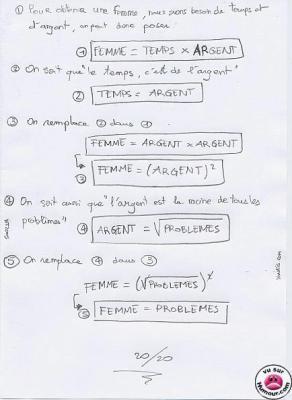 ① Pour obtenir une femme, nous avons besoin de temps et
d'argent, on peut donc poser :
① FEMME = TEMPS × ARGENT
② On sait que "le temps, c'est de l'argent"
② TEMPS = ARGENT
③ On remplace ② dans ①
FEMME = ARGENT × ARGENT
③ FEMME = (ARGENT)²
④ On sait aussi que "l'argent est la racine de tous les
problèmes"
④ ARGENT = √PROBLEMES
⑤ On remplace ④ dans ③
FEMME = (√PROBLEMES)²
⑤ FEMME = PROBLEMES
20/20
vu sur
Humour.com